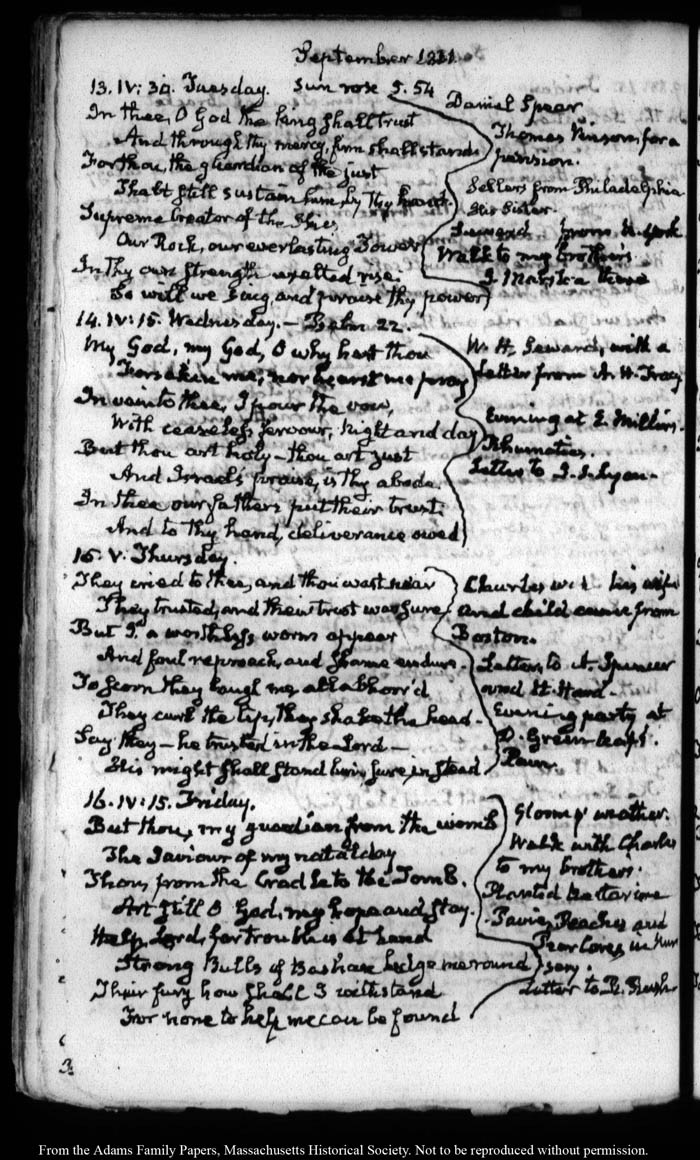 September 1831.
13. IV: 30. Tuesday. Sun rose 5.54
In thee, O God the king shall trust
And through thy mercy, firm shall stand
For thou, the guardian of the just
Shalt still sustain him, by thy hand.
Supreme Creator of the Skies
Our Rock, our everlasting Tower
In thy own strength exalted rise
So will we sing, and praise thy power
Daniel Spear
Thomas Vinson, for a
pension.
Sellers from Philadelphia
His Sister.
from N. York
Walk to my brother's.
there
14. IV: 15. Wednesday. — Psalm 22.
My God, my God, O why hast thou
Forsaken me; nor hearst me pray
In vain to thee, I pour the vow,
With ceaseless fervour, night and day
But thou art holy — thou art just
And Israel's praise, is thy abode.
In thee our fathers put their trust:
And to thy hand, deliverance owed
W. H. Seward, with a
letter from A. H. Tracy
Evening at E. Miller's.
Rhumatics.
Letter to
15. V. Thursday.
They cried to thee, and thou wast near
They trusted, and their trust was sure
But I a worthless worm appear
And foul reproach, and shame endure.
To scorn they laugh me, all abhorr'd
They curl the lip, they shake the head.
Say they — he trusted in the Lord —
His might shall stand him, sure, in stead
Charles with his wife
and child came from
Boston.
Letters to A. Spencer
and
Evening party at
D. Greenleaf's.
16. IV: 15. Friday.
But thou, my guardian from the womb
The Saviour of my natal day
Thou, from the Cradle to the Tomb.
Art still O God, my hope and stay.
Help, Lord, for trouble is at hand
Strong Bulls of Bashan hedge me round
Their fury how shall I withstand
For none to help me can be found
Gloomy weather.
Walk with Charles
to my brother's.
Planted Nectarine
Peaches and
Pear Cores in Nur
sery.
Letter to R. Rush
3.
From the Adams Family Papers, Massachusetts Historical Society. Not to be reproduced without permission.